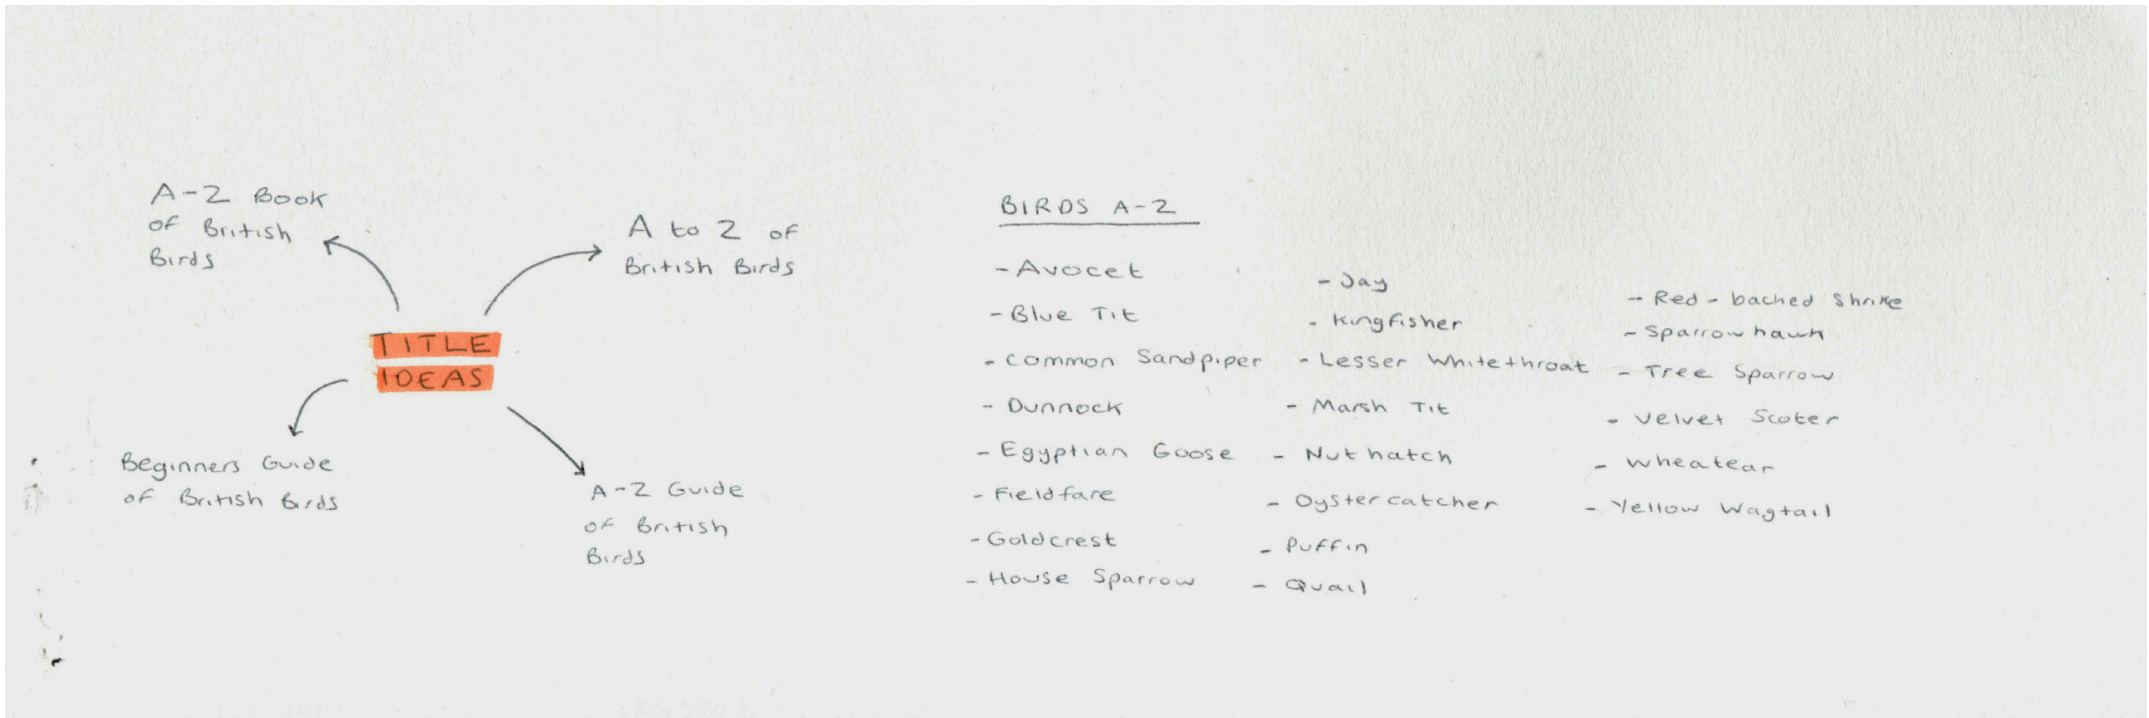 A-Z Book
of British
Birds
A to Z of
British Birds
TITLE
IDEAS
Beginners Guide
of British Birds
A-Z Guide
of British
Birds
BIRDS A-Z
- Avocet
- Blue Tit
- Common Sandpiper
- Dunnock
- Egyptian Goose
- Fieldfare
- Goldcrest
- House Sparrow
- Jay
- Kingfisher
- Lesser Whitethroat
- Marsh Tit
- Nuthatch
- Oystercatcher
- Puffin
- Quail
- Red-backed Shrike
- Sparrowhawk
- Tree Sparrow
- Velvet Scoter
- Wheatear
- Yellow Wagtail